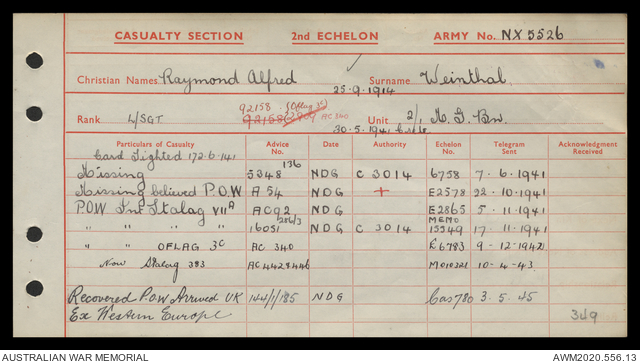 CASUALTY SECTION 2nd ECHELON ARMY No. NX 5526
Christian Names Raymond Alfred Surname Weinthal
25-9-1914
92158 (Oflag 3C)
Rank L/SGT 92158 AC 340 Unit 2/1 M. G. Bn.
30.5.1941 Crete
Particulars of Casualty Advice No. Date Authority Echelon No. Telegram Sent Acknowledgment Received
Card Sighted 172.6.141
Missing 5348 136 NDG C 3014 6758 7-6-1941
Missing believed P.O.W A 54 NDG + E2578 22.10.1941
P.O.W Int Stalag VIIA AC92 E2865 5.11.1941
" " " " 16051 NDG C 3014 MEMO 15549 17-11-1941
" " OFLAG 3C AC 340 E6783 9-12-1942
Now Stalag 383 AC4428446 M010221 10-4-43
Recovered P.O.W Arrived UK 144/1/185 NDG Cas780 3.5.45
Ex Western Europe 349
AUSTRALIAN WAR MEMORIAL AWM2020.556.13